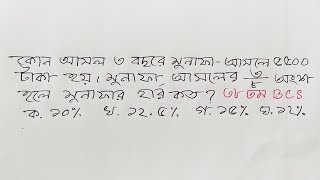 কোন আসল ৩ বছরে মুনাফা-আসলে ৫৫০০
টাকা হয়। মুনাফা, আসলের ৩/৮ অংশ
হলে মুনাফার হার কত? ৩৮ তম BCS
ক. ১০% খ. ১২.৫% গ. ১৫% ঘ. ১২%